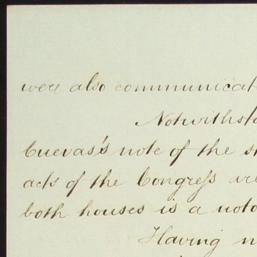 were also communicat
Notwithsta
Cuevas's note of the s
acts of the Congress we
both houses is a noto
Having n